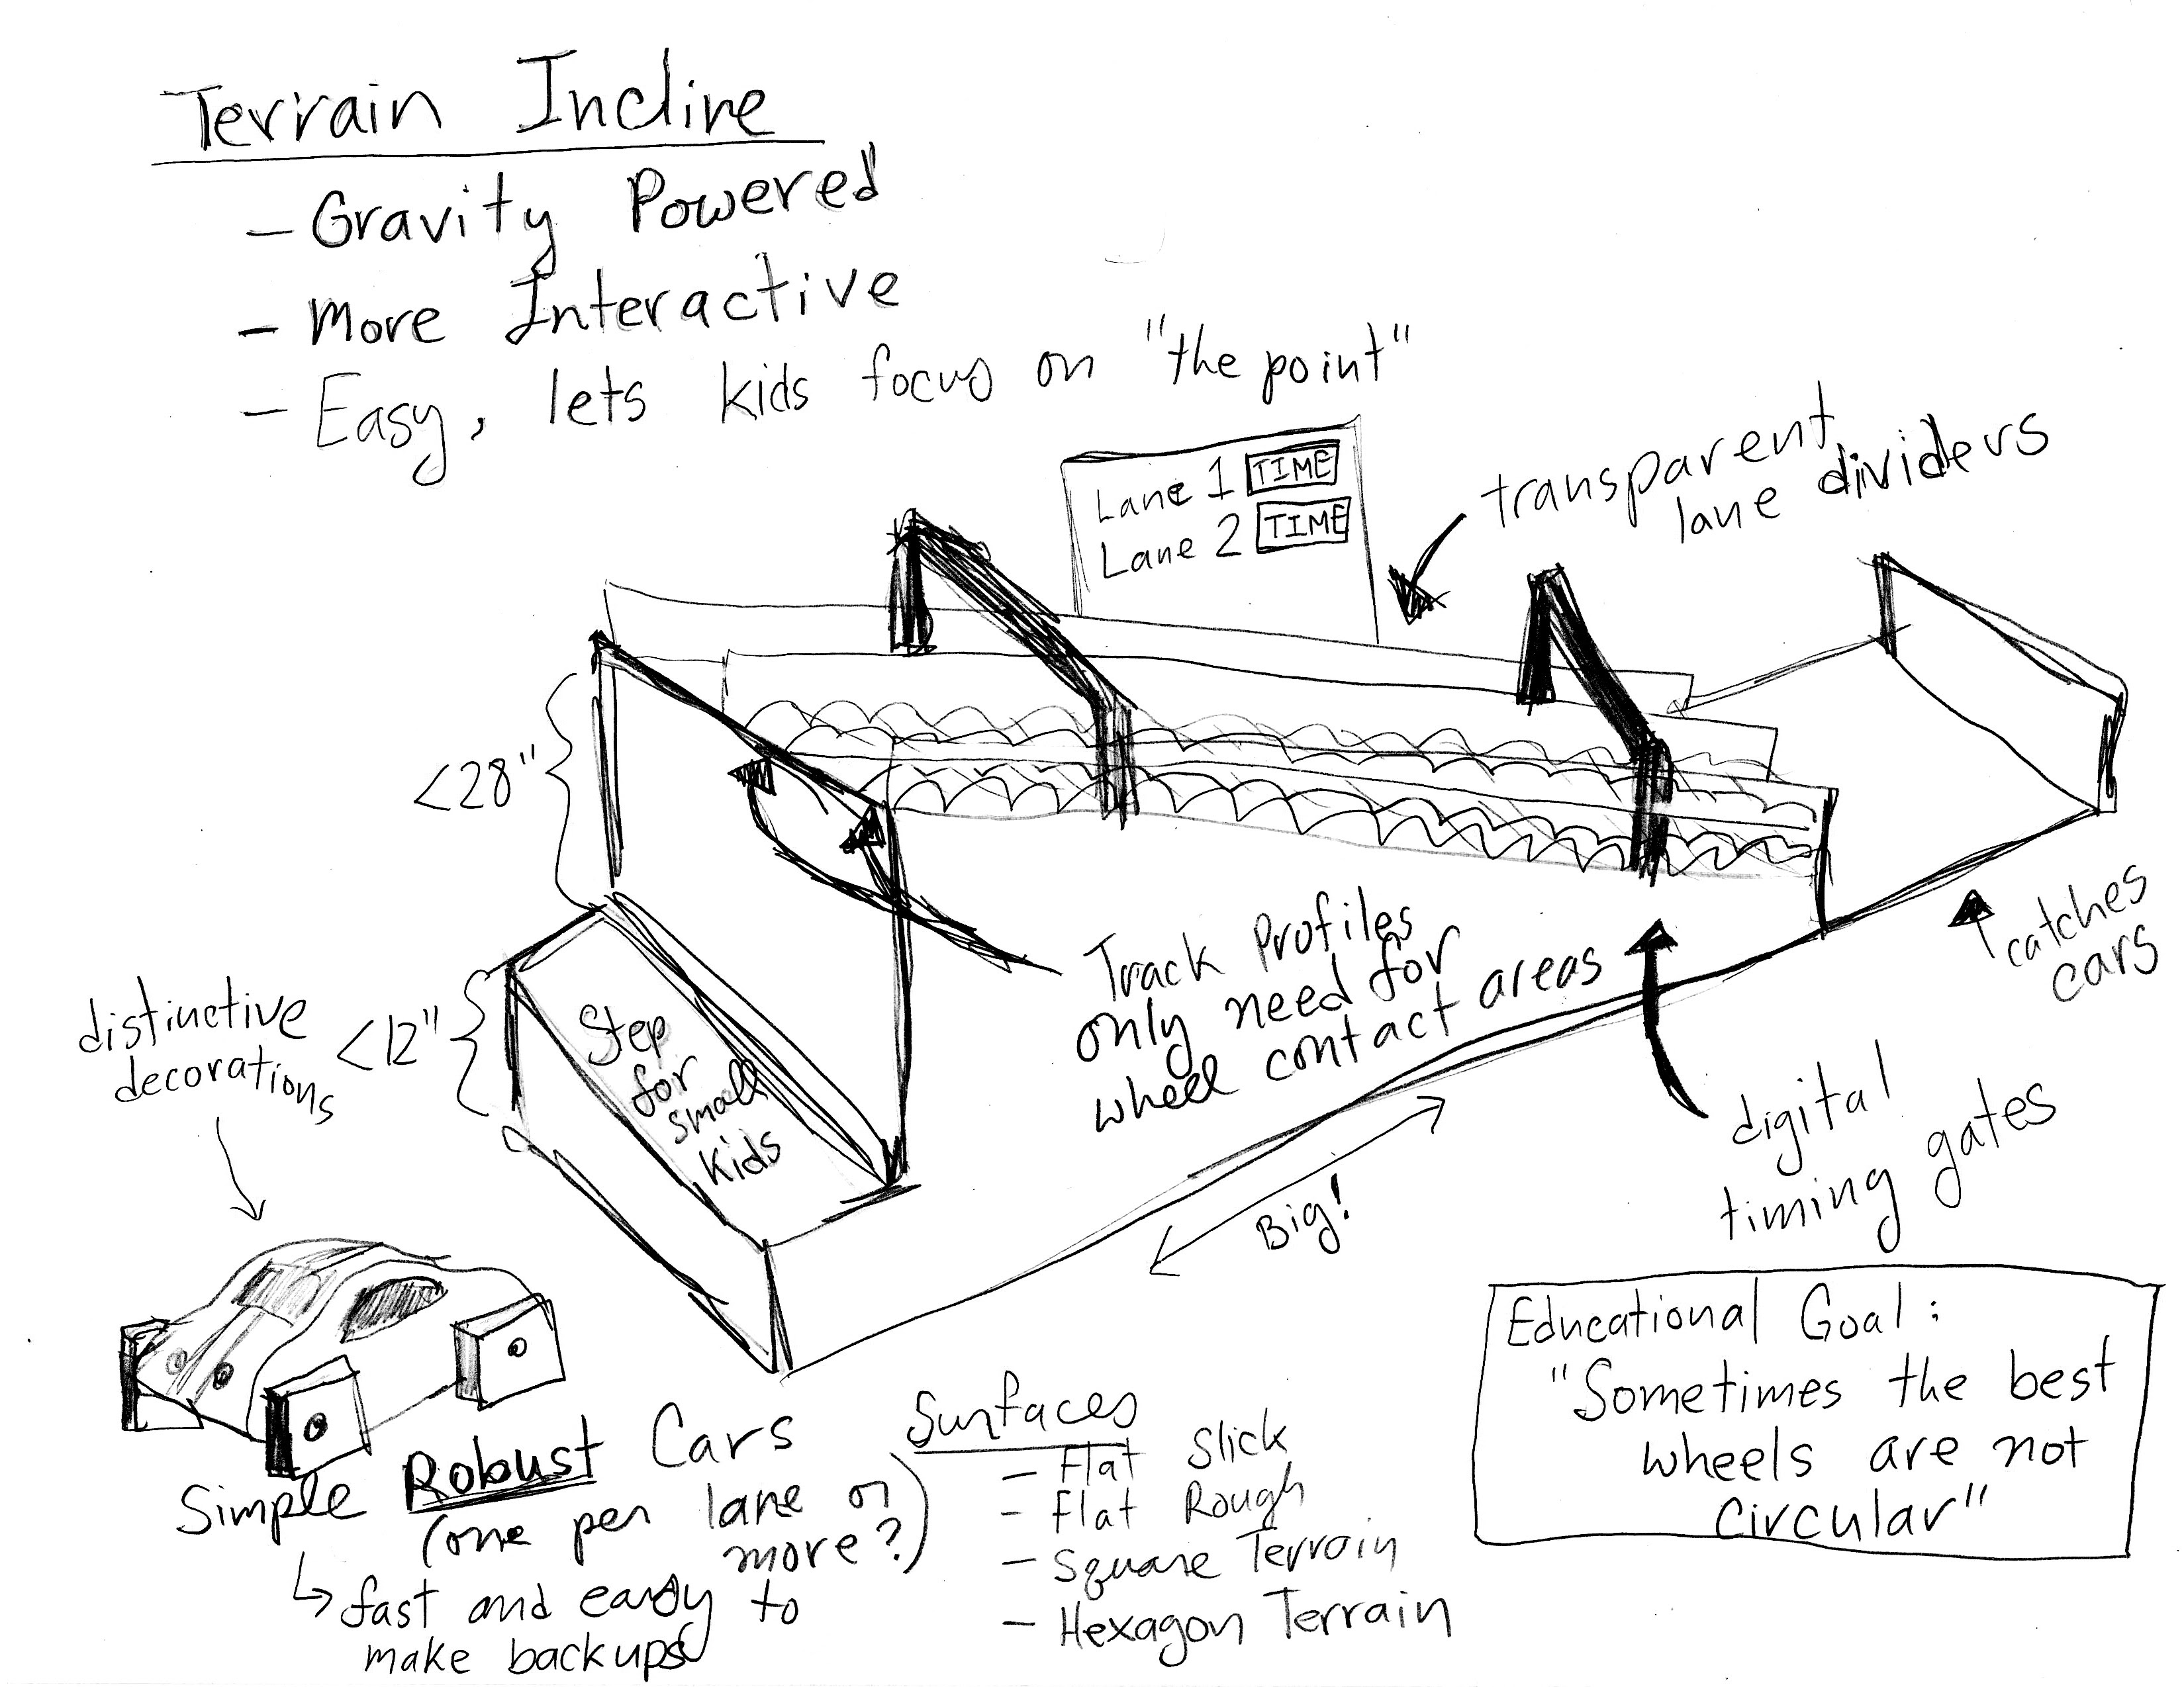 Terrain Incline
- Gravity Powered
- More Interactive
- Easy, lets kids focus on "the point"
Lane 1 TIME
Lane 2 TIME
transparent
lane dividers
<28"
<12"
distinctive
decorations
Step
for
small
kids
Track Profiles
only need for
wheel contact areas
catches
cars
digital
timing gates
Big!
Simple Robust Cars
(one per lane or
more?)
↳ fast and easy to
make backups
Surfaces
- Flat Slick
- Flat Rough
- Square Terrain
- Hexagon Terrain
Educational Goal:
"Sometimes the best
wheels are not
circular"